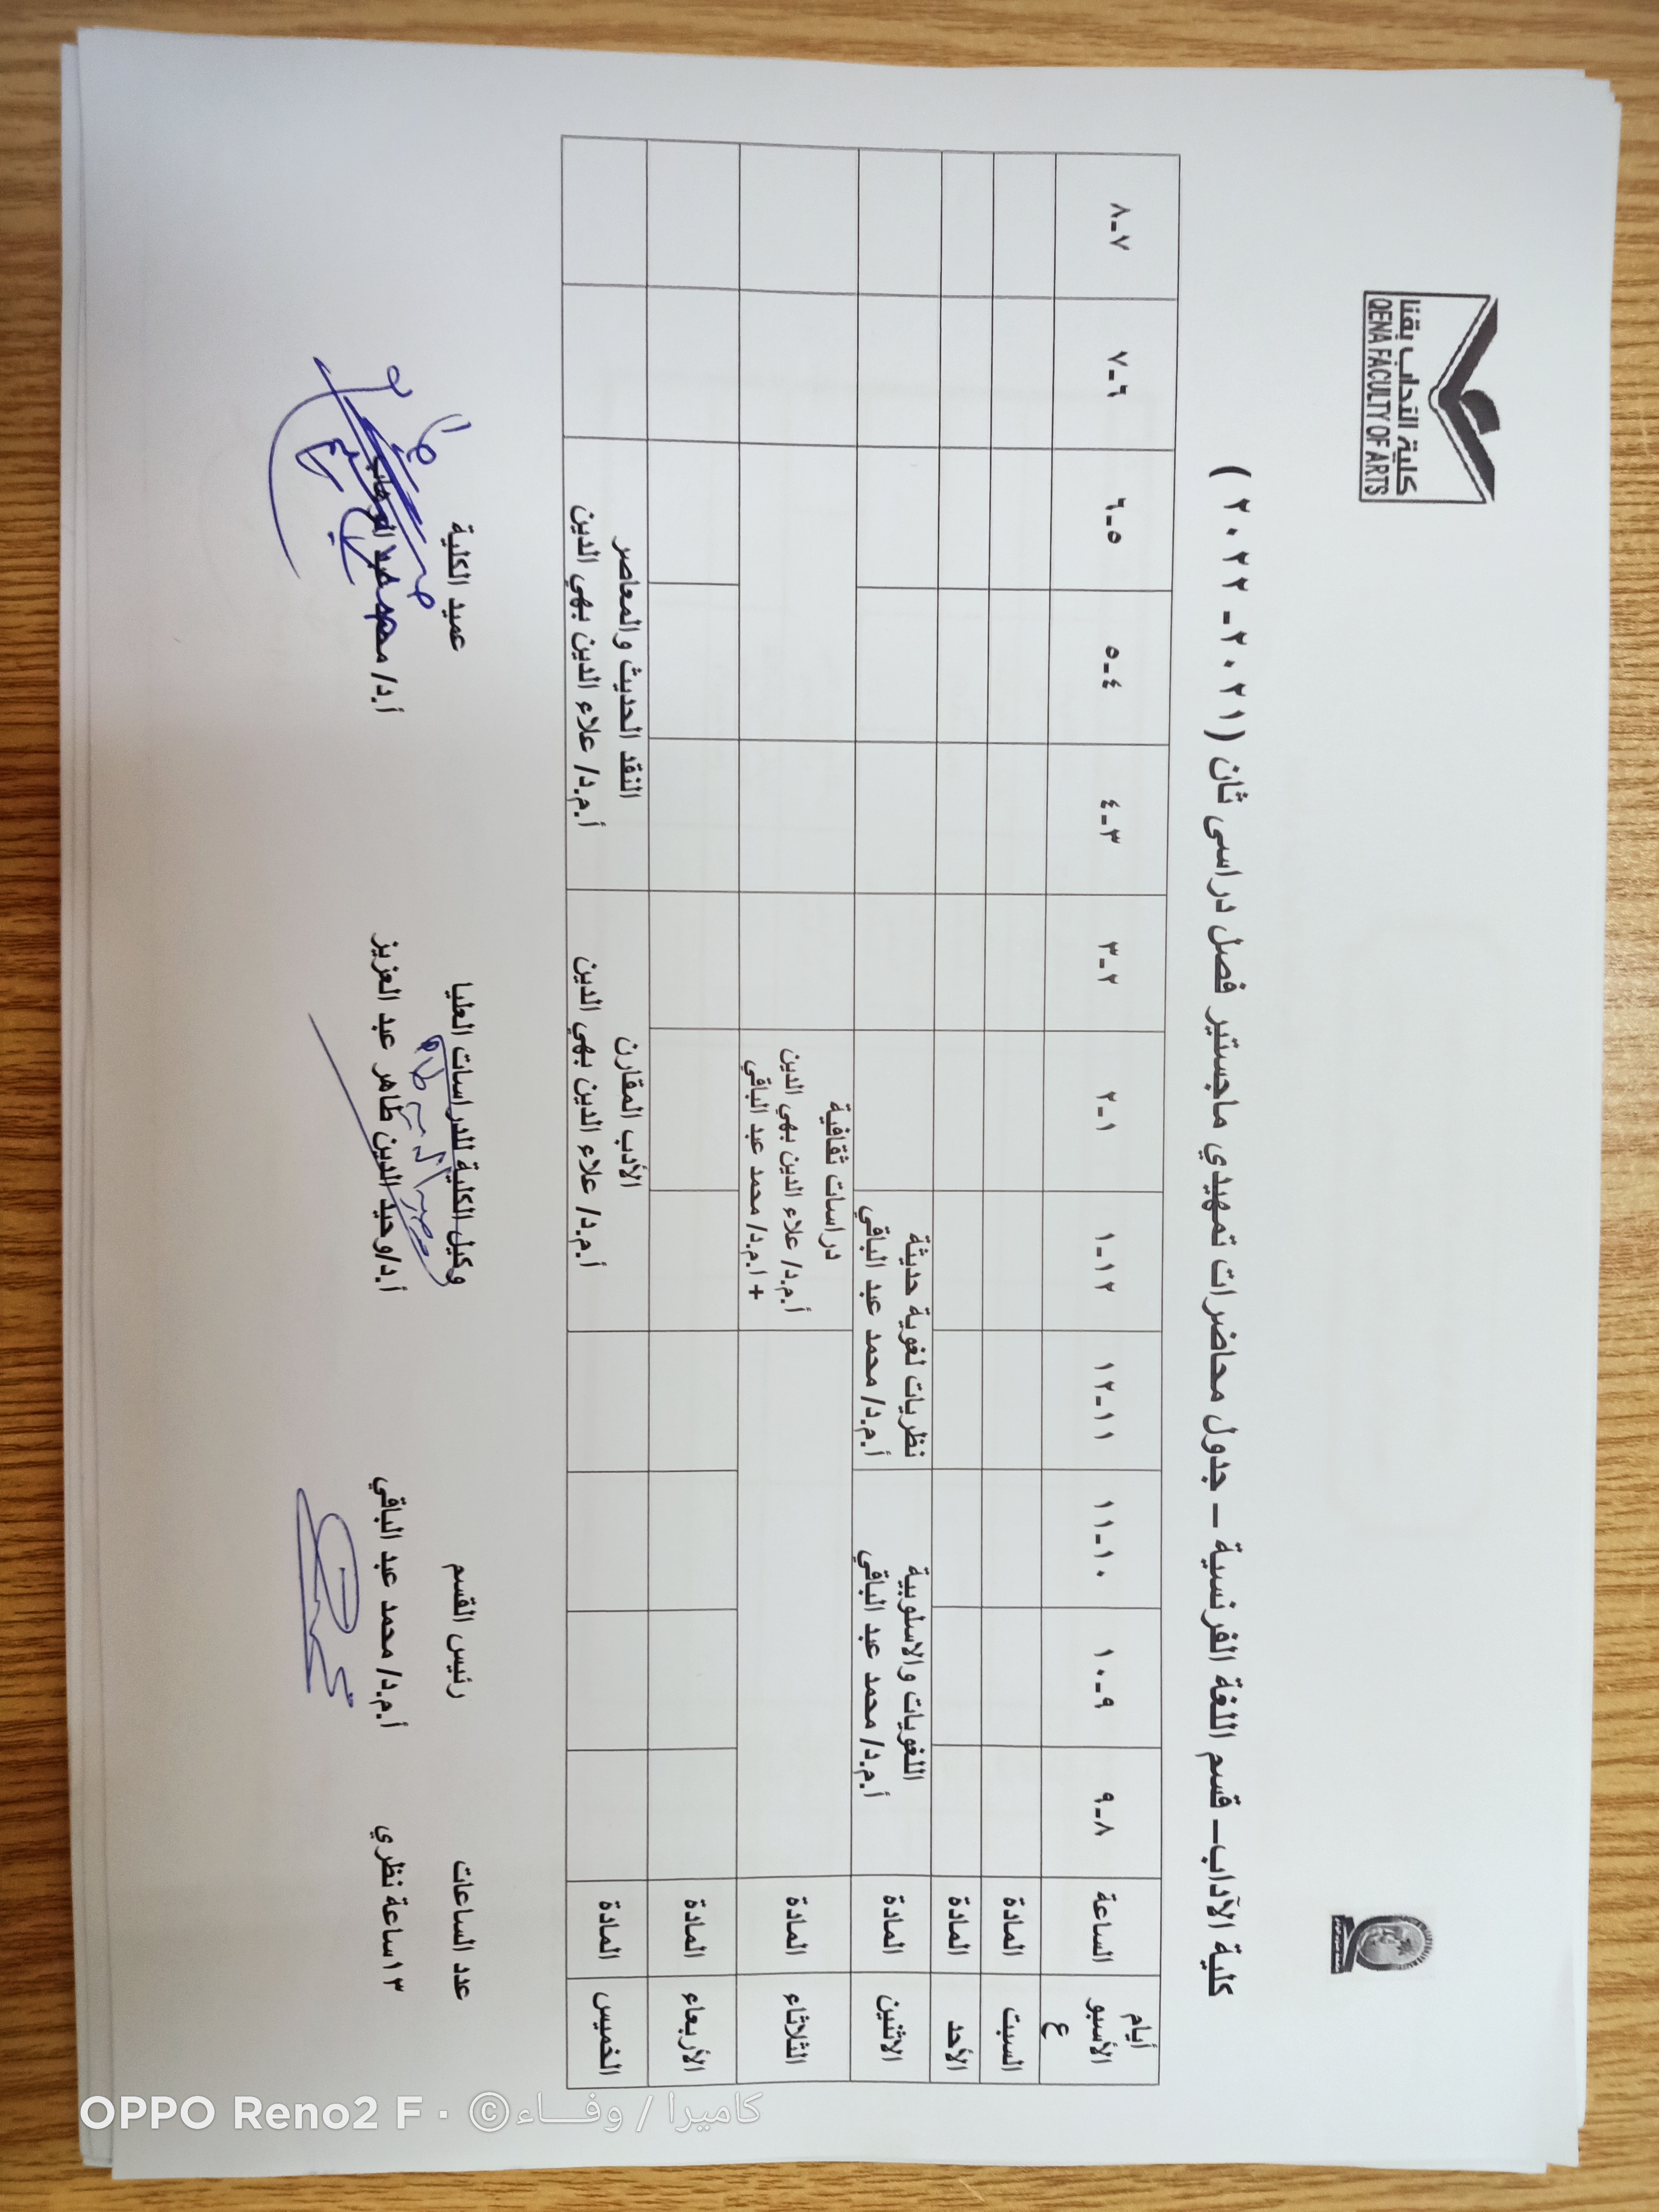 كلية الآداب بقنا
QENA FACULTY OF ARTS
كلية الآداب– قسم اللغة الفرنسية – جدول محاضرات تمهيدي ماجستير فصل دراسى ثان (٢٠٢١-٢٠٢٢ )
أيام الأسبوع
الساعة
٨-٩
٩-١٠
١٠-١١
١١-١٢
١٢-١
١-٢
٢-٣
٣-٤
٤-٥
٥-٦
٦-٧
٧-٨
السبت
المادة
الأحد
المادة
الاثنين
المادة
اللغويات والاسلوبية
أ.م.د/ محمد عبد الباقي
نظريات لغوية حديثة
أ.م.د/ محمد عبد الباقي
الثلاثاء
المادة
دراسات ثقافية
أ.م.د/ علاء الدين بهي الدين
+ ا.م.د/ محمد عبد الباقي
الأربعاء
المادة
الخميس
المادة
الأدب المقارن
أ.م.د/ علاء الدين بهي الدين
النقد الحديث والمعاصر
أ.م.د/ علاء الدين بهي الدين
عدد الساعات
١٣ساعة نظري
رئيس القسم
أ.م.د/ محمد عبد الباقي
وكيل الكلية للدراسات العليا
أ.د/وحيد الدين طاهر عبد العزيز
عميد الكلية
أ.د/ محمد
OPPO Reno2 F · ©كاميرا / وفـــاء